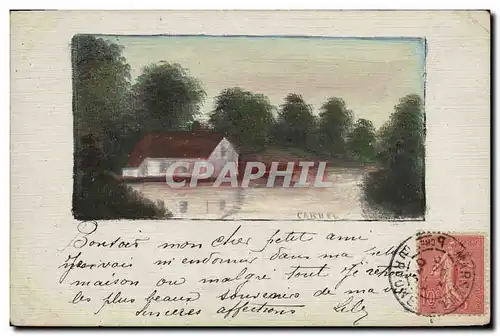 CPAPHIL
CARUEL
Bonsoir mon cher petit ami
ni endormie dans ma petite
maison ou malgré tout je retrouve
les plus beaux souvenirs de ma vie
sinceres affections Lily